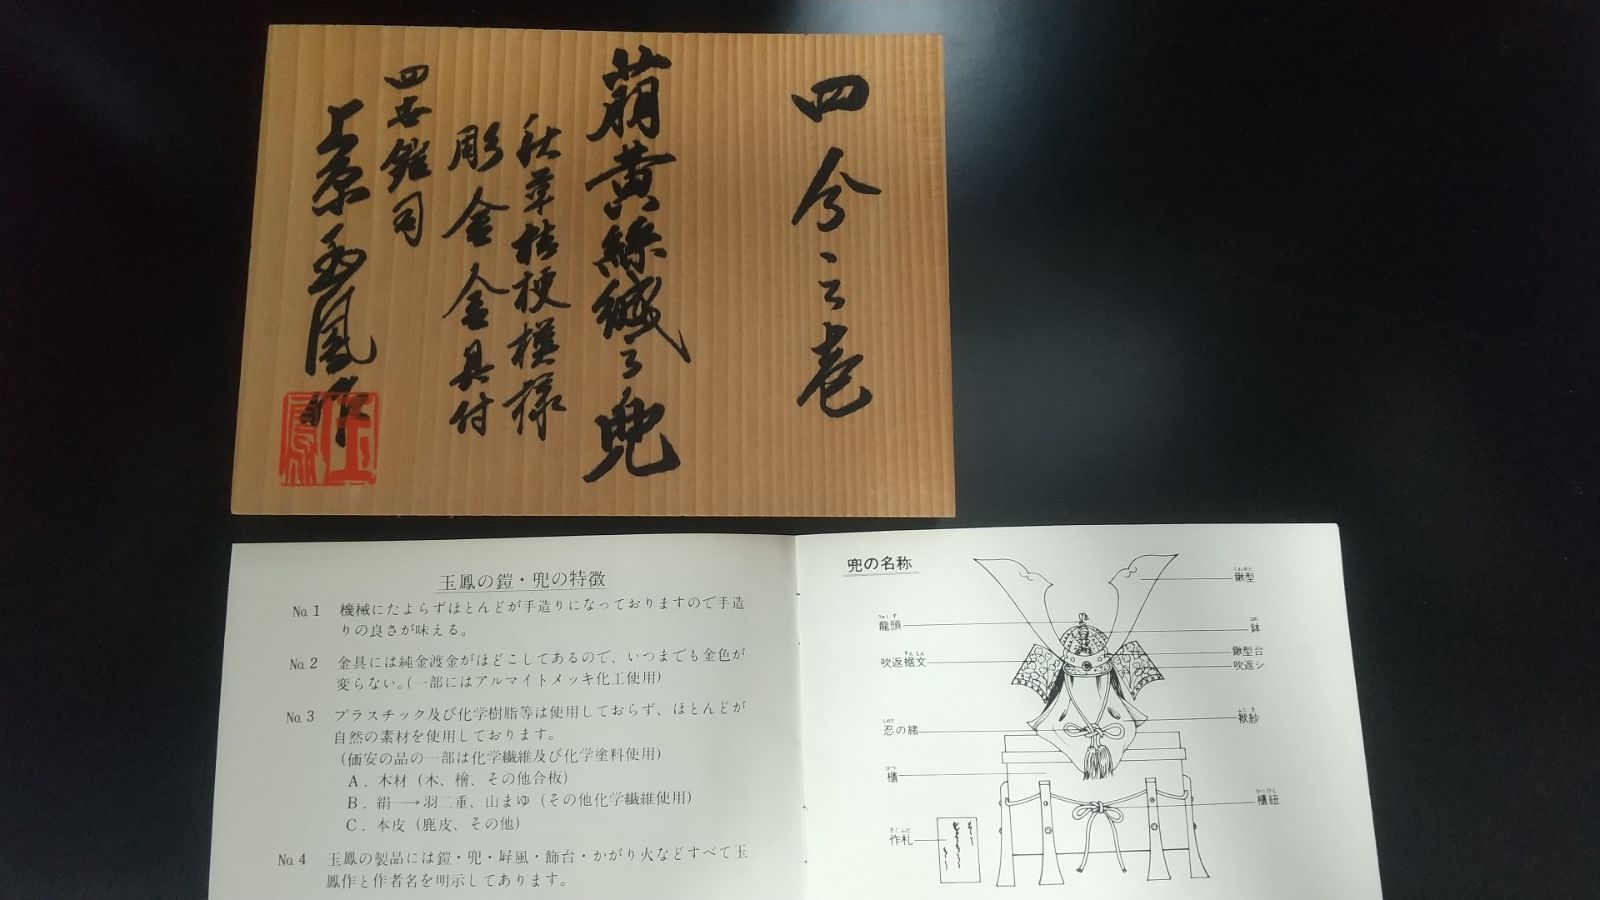 四分之壱
萠黄絲縅之兜
秋草桔梗模様
彫金金具付
四世鎧司
上原玉鳳作
玉鳳
玉鳳の鎧・兜の特徴
No.1 機械にたよらずほとんどが手造りになっておりますので手造
りの良さが味える。
No.2 金具には純金渡金がほどこしてあるので、いつまでも金色が
変らない。(一部にはアルマイトメッキ化工使用)
No.3 プラスチック及び化学樹脂等は使用しておらず、ほとんどが
自然の素材を使用しております。
(価安の品の一部は化学繊維及び化学塗料使用)
A．木材（木、檜、その他合板）
B．絹─→羽二重、山まゆ（その他化学繊維使用）
C．本皮（鹿皮、その他）
No.4 玉鳳の製品には鎧・兜・屏風・飾台・かがり火などすべて玉
鳳作と作者名を明示してあります。
兜の名称
くわがた
鍬型
龍頭
鉢
吹返裾文
鍬型台
吹返シ
しのび
忍の緒
ふくさ
袱紗
ひつ
櫃
ひつひも
櫃紐
さくふだ
作札